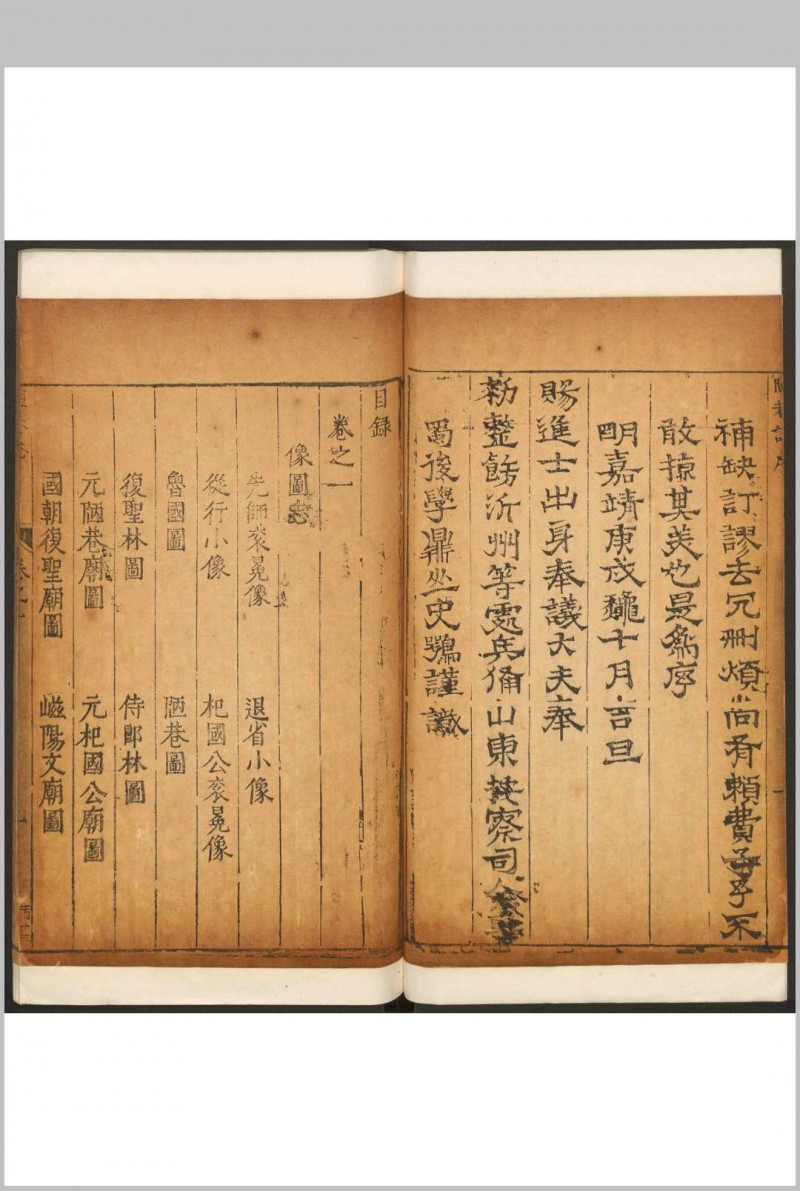 補缺訂謬去冗刪煩尚有賴費子予不
敢掠其美也是為序
明嘉靖庚戌龝十月吉旦
賜進士出身奉議大夫奉
勑整飭沂州等處兵俻山東按察司僉事
蜀後學鼎丠史鶚謹識
目録
卷之一
像圖志
先師衮冕像
退省小像
從行小像
杞國公衮冕像
魯國圖
陋巷圖
復聖林圖
侍郎林圖
元陋巷廟圖
元杞國公廟圖
國朝復聖廟圖
嵫陽文廟圖
卷之一